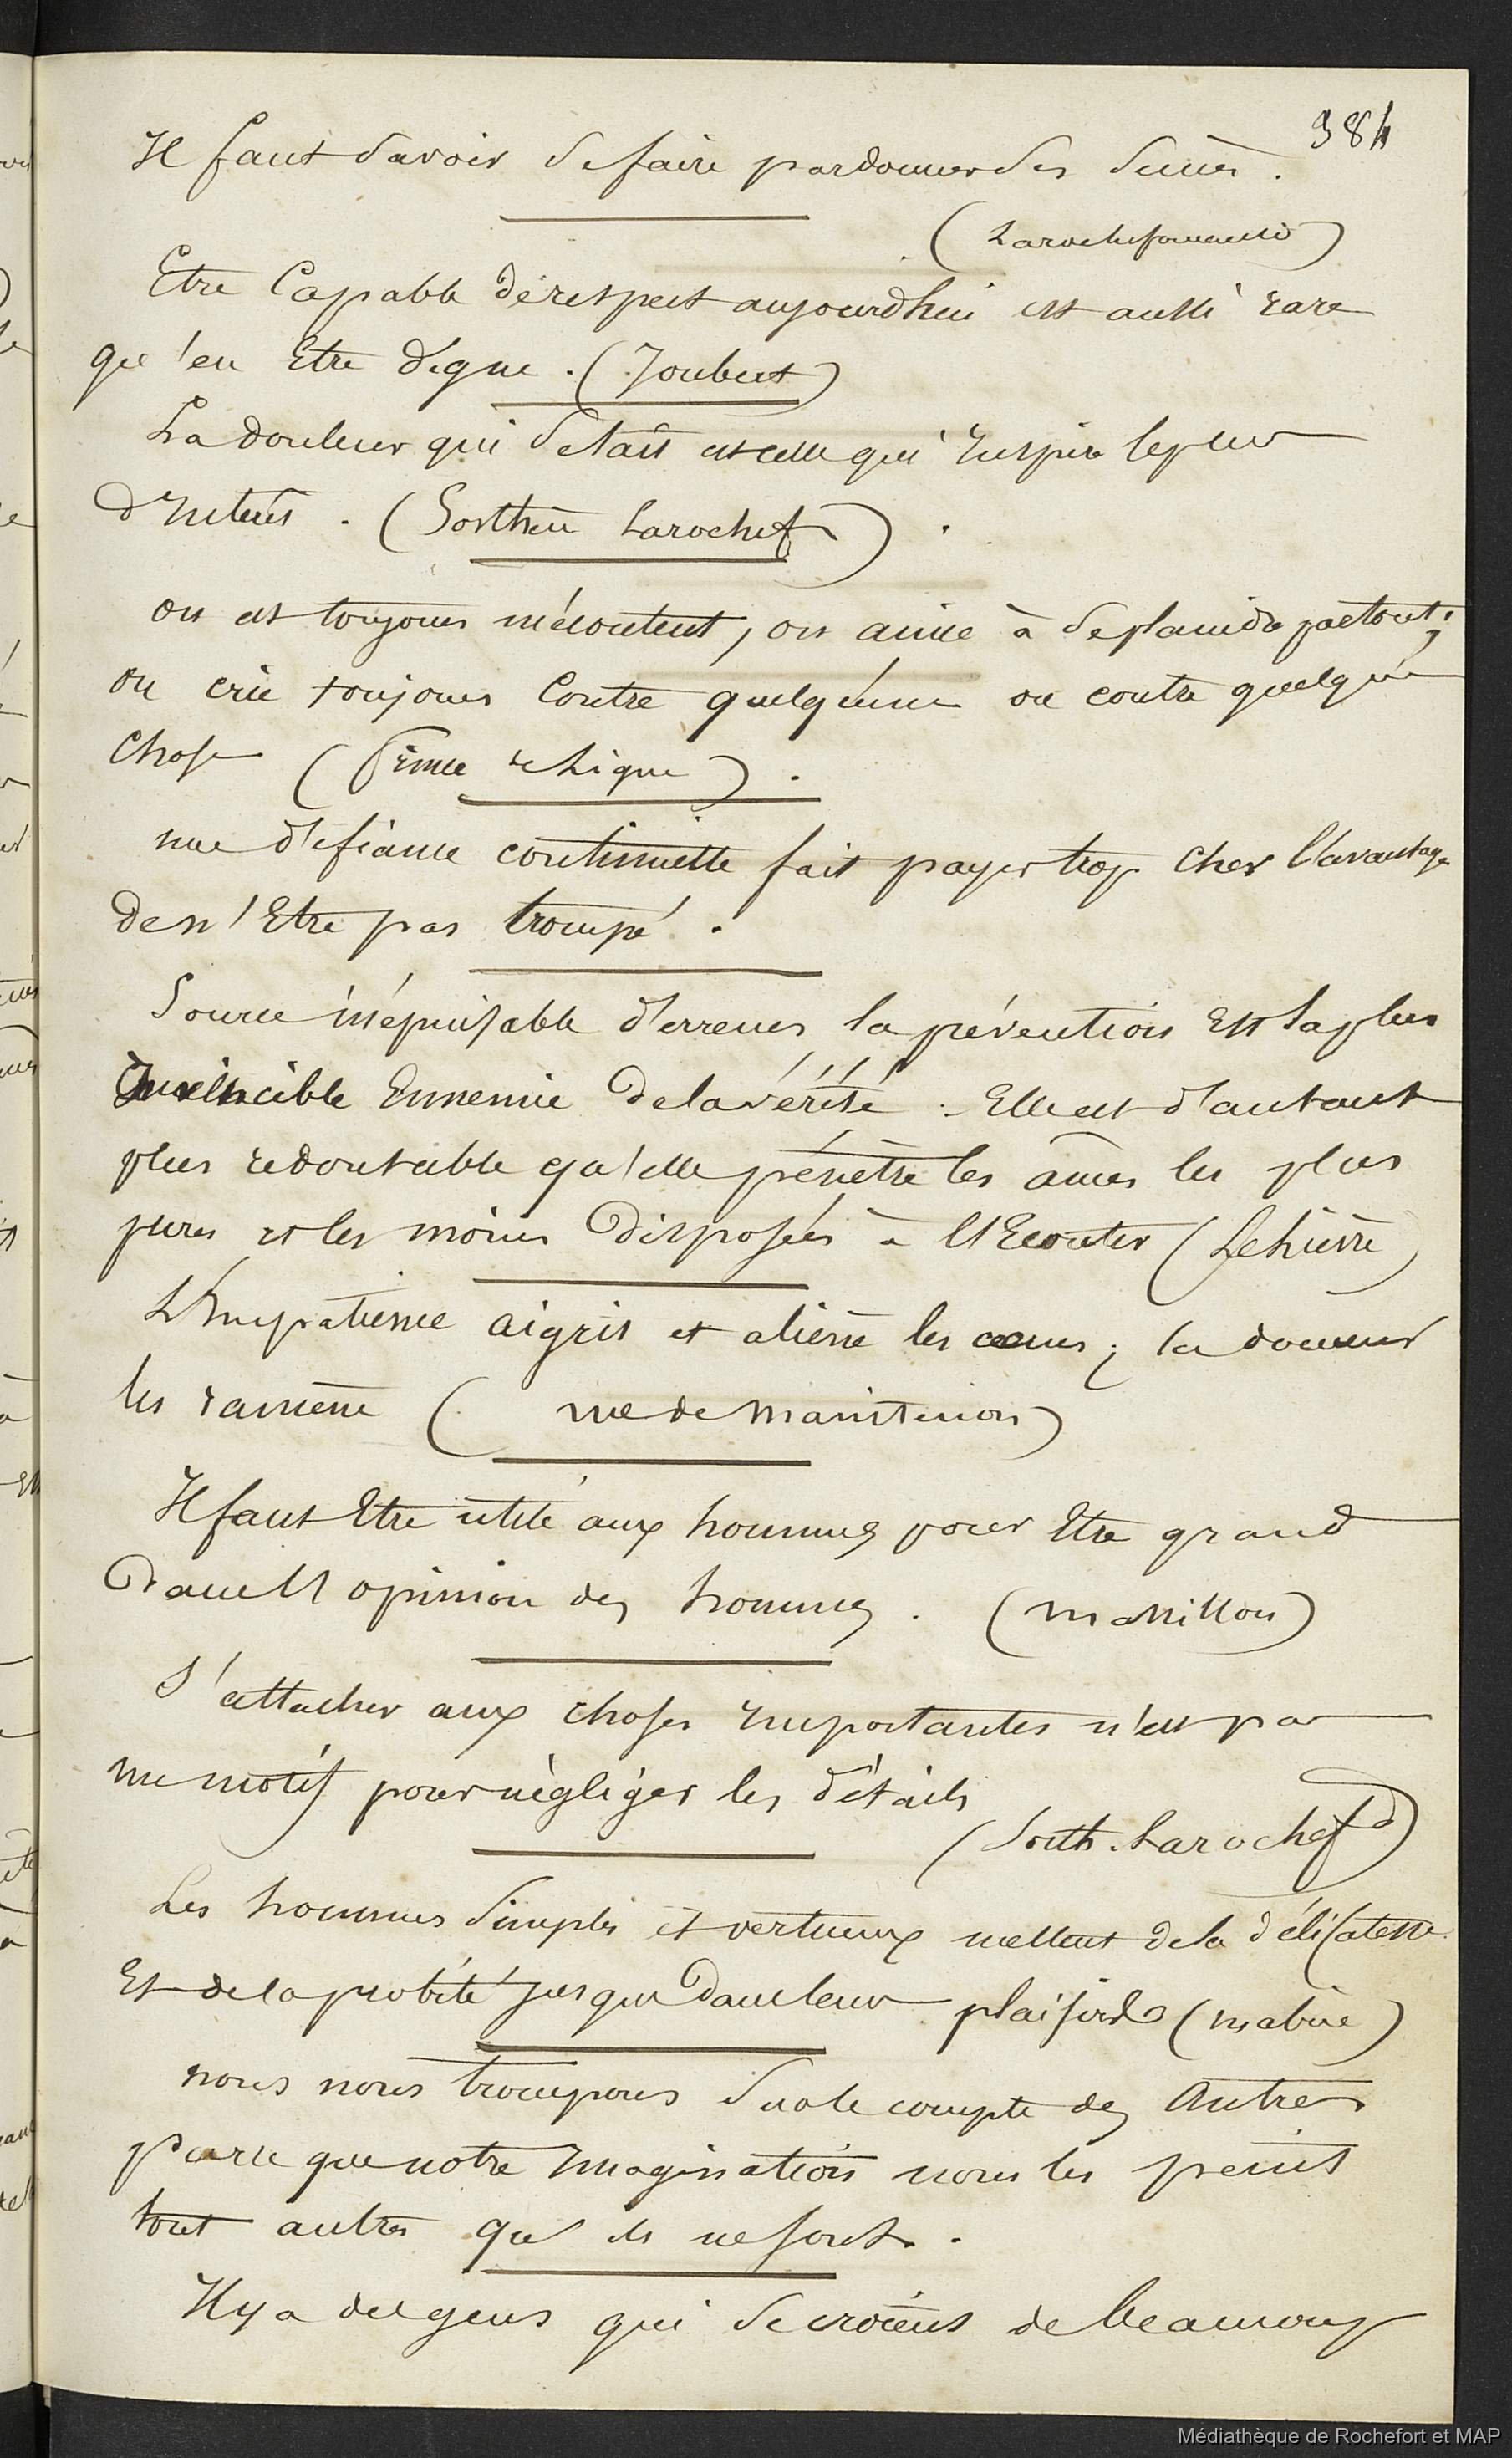 384
Il faut savoir se faire pardonner ses succès.
(Larochefoucauld)
Etre capable de respect aujourd'hui est aussi rare
qu'en Etre digne. (Joubert)
La douleur qui se tait est celle qui Inspire le plus
d'Intérêt. (Sosthène Larochef)
on est toujours mécontent, on aime à se plaindre partout;
on crie toujours Contre quelqu'une ou contre quelque
chose (Prince de Ligne).
une défiance continuelle fait payer trop cher l'avantage
de n'Etre pas trompé.
Source inépuisable d'erreurs la prévention Est la plus
Invincible Ennemie de la vérité. Elle est d'autant
plus redoutable qu'elle pénètre les âmes les plus
pures et les moins disposées à l'Ecouter (Lehièvre)
L'Impatience aigrit et aliène les coeurs; la douceur
les ramène (me de Maintenon)
Il faut Etre utile aux hommes pour Etre grand
dans l'opinion des hommes. (Massillon)
S'attacher aux choses Importantes n'est pas
un motif pour négliger les détails
(Sosth. Larochefd)
Les hommes simples et vertueux mettent de la délicatesse
Et de la probité jusque dans leurs plaisirs (mabire)
nous nous trompons sur le compte des Autres
parce que notre Imagination nous les peint
tout autres qu'ils ne sont.
Il y a des gens qui se croient de beaucoup
Médiathèque de Rochefort et MAP